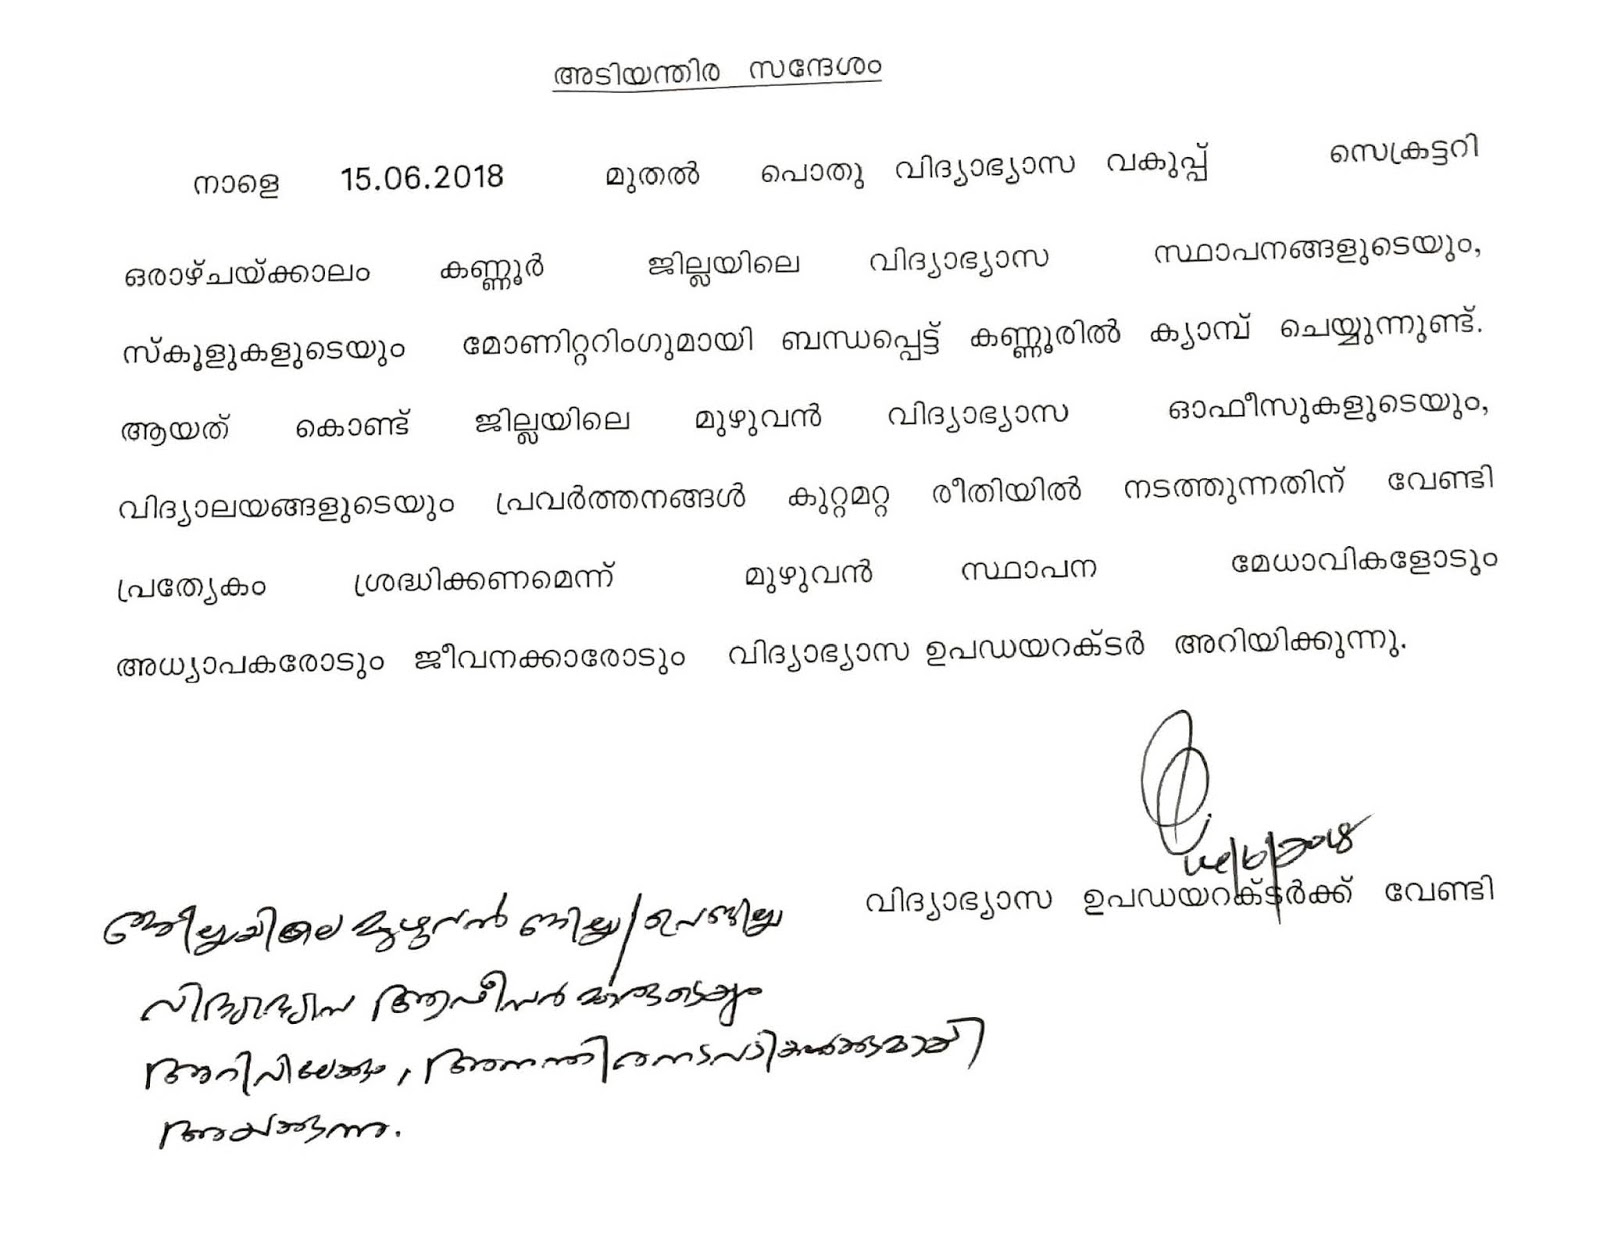 അടിയന്തിര സന്ദേശം
നാളെ 15.06.2018 മുതൽ പൊതു വിദ്യാഭ്യാസ വകുപ്പ് സെക്രട്ടറി
ഒരാഴ്ചയ്ക്കാലം കണ്ണൂർ ജില്ലയിലെ വിദ്യാഭ്യാസ സ്ഥാപനങ്ങളുടെയും,
സ്കൂളുകളുടെയും മോണിറ്ററിംഗുമായി ബന്ധപ്പെട്ട് കണ്ണൂരിൽ ക്യാമ്പ് ചെയ്യുന്നുണ്ട്.
ആയത് കൊണ്ട് ജില്ലയിലെ മുഴുവൻ വിദ്യാഭ്യാസ ഓഫീസുകളുടെയും,
വിദ്യാലയങ്ങളുടെയും പ്രവർത്തനങ്ങൾ കുറ്റമറ്റ രീതിയിൽ നടത്തുന്നതിന് വേണ്ടി
പ്രത്യേകം ശ്രദ്ധിക്കണമെന്ന് മുഴുവൻ സ്ഥാപന മേധാവികളോടും
അധ്യാപകരോടും ജീവനക്കാരോടും വിദ്യാഭ്യാസ ഉപഡയറക്ടർ അറിയിക്കുന്നു.
വിദ്യാഭ്യാസ ഉപഡയറക്ടർക്ക് വേണ്ടി
ജില്ലയിലെ മുഴുവൻ ജില്ലാ/ഉപജില്ലാ
വിദ്യാഭ്യാസ ആഫീസർമാരുടെയും
അറിവിലേക്കും, അനന്തിരനടപടികൾക്കുമായി
അയക്കുന്നു.